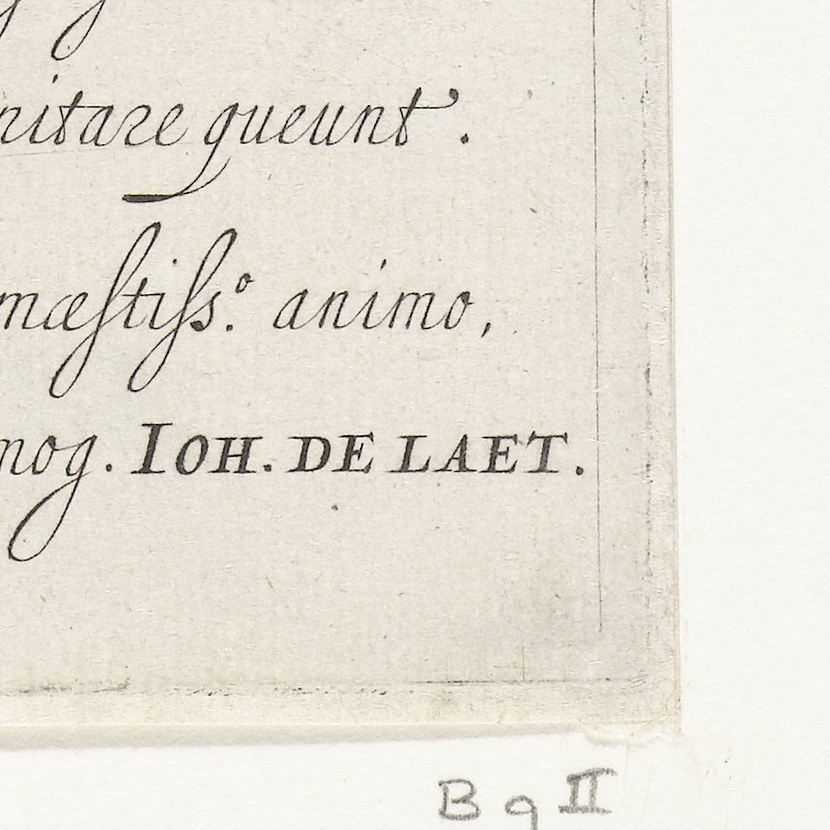 nitare queunt.
mæſtiſs.º animo,
mog. IOH. DE LAET.
B q II